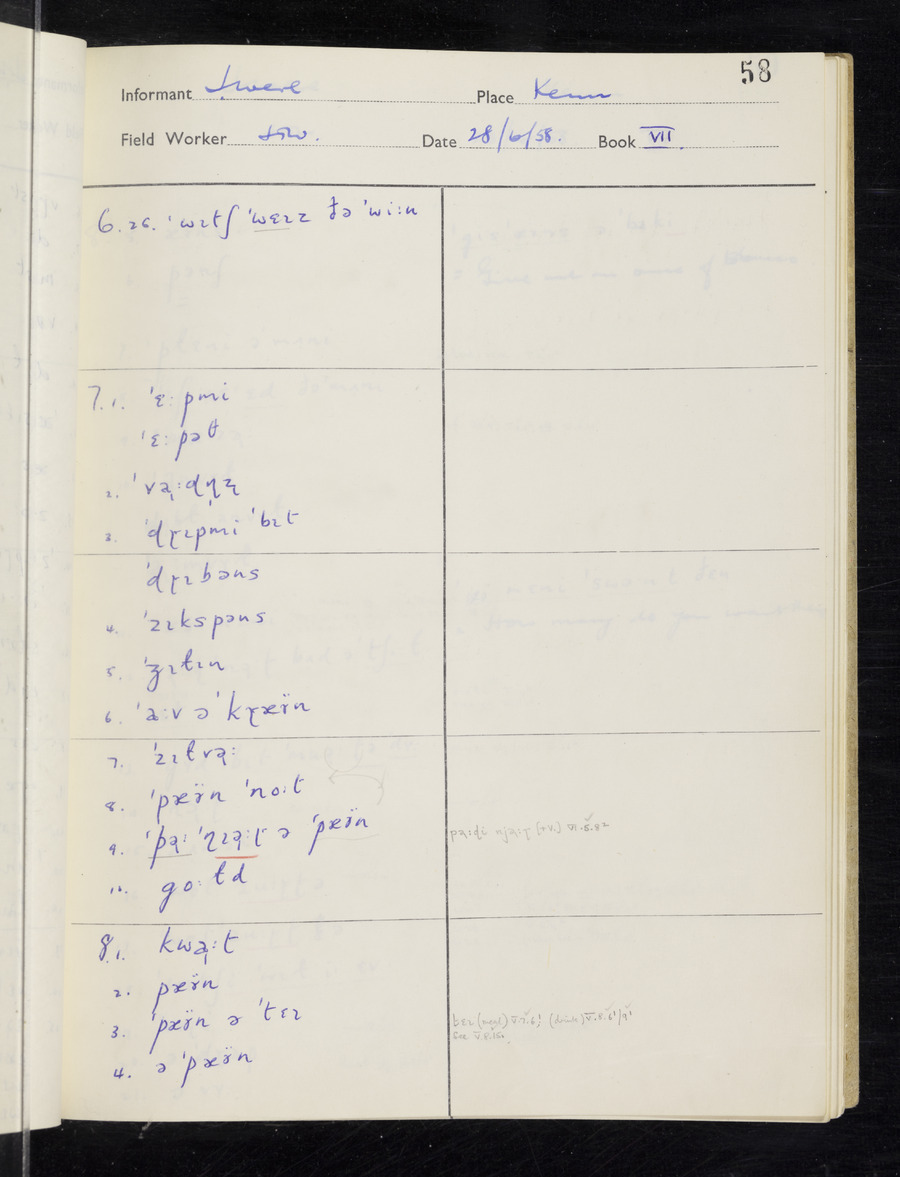 58
Informant Place Kenn
Field Worker Date 28/6/58. Book VII
6.26. ˈwɪtʃ ˈwɛɪz ðə ˈwiːn
7.1. ˈɛːpmi
ˈɛːpəθ
2. ˈvəːdn̩z
3. ˈdɽɪpmi ˈbɪt
ˈdɽɪbəns
4. ˈzɪkspəns
5. ˈʒɪtɪn
6. ˈaːv ə ˈkɽæʏ̈n
7. ˈzɪtrə:
8. ˈpæʏ̈n ˈnoːt
9. ə ˈpæʏ̈n
10. goːɫd
pəːdi njəːɽ (+V.) VI.5.8²
8.1. kwəːt
2. pæʏ̈n
3. ˈpæʏ̈n ə ˈtɛɪ
4. ə ˈpæʏ̈n
tɛɪ (meal) V.7.6; (drink) V.8.6¹/9¹
See V.8.15.